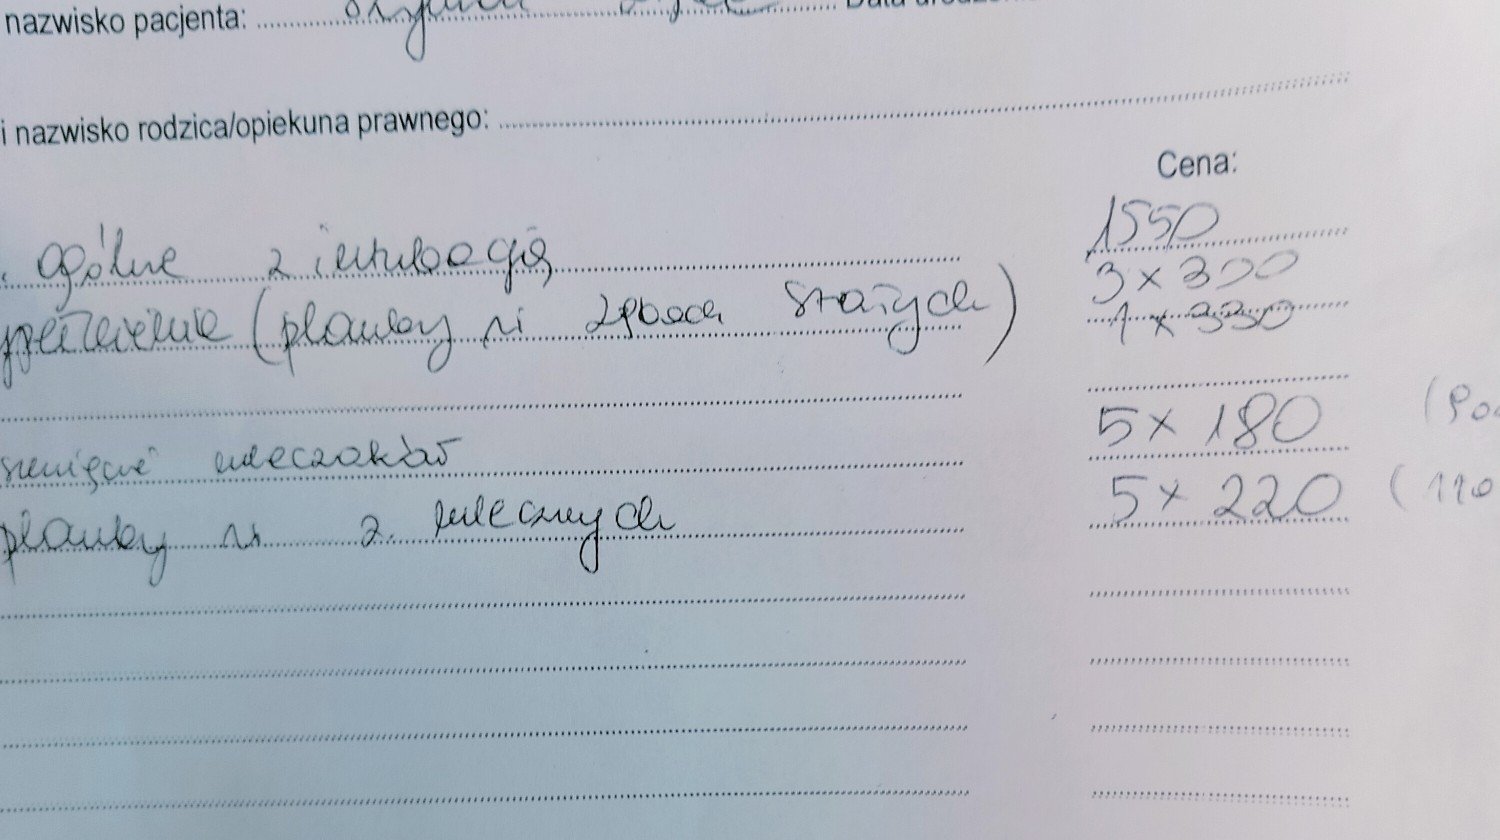 nazwisko pacjenta:
i nazwisko rodzica/opiekuna prawnego:
Cena:
ogólne z intubacją 1550
3 x 300
(plomby w zębach stałych) 1 x 330
usunięcie mleczaków 5 x 180
plomby w z. mlecznych 5 x 220 (110